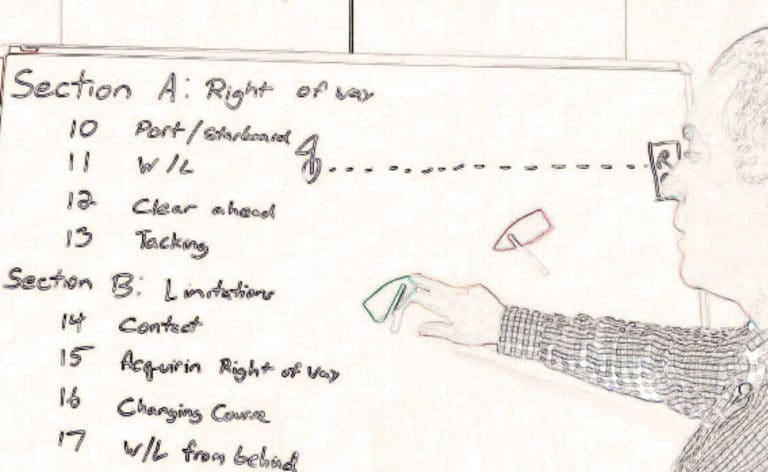 Section A: Right of way
10 Port/Starboard
11 W/L
12 Clear ahead
13 Tacking
Section B: Limitations
14 Contact
15 Acquirin Right of way
16 Changing Course
17 W/L from behind
R